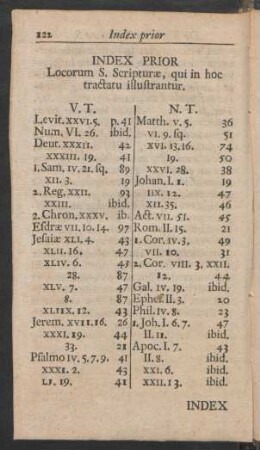 122 Index prior
INDEX PRIOR
Locorum S. Scripturæ, qui in hoc
tractatu illustrantur.
V. T.
Levit. XXVI. 5. p. 41
Num. VI. 26. ibid.
Deut. XXXII. 42
XXXIII. 19. 41
1. Sam. IV. 21. sq. 89
XII. 3. 19
2. Reg. XXII. 93
XXIII. ibid.
2. Chron. XXXV. ib.
Esdræ VII. 10. 14. 97
Jesaiæ XLI. 4. 43
XLII. 16. 47
XLIV. 6. 43
28. 87
XLV. 7. 47
8. 87
XLIIX. 12. 43
Jerem. XVII. 16. 26
XXXI. 19. 44
33. 21
Psalmo IV. 5, 7, 9. 41
XXXI. 2. 43
LI. 19. 41
N. T.
Matth. V. 5. 36
VI. 9. sq. 51
XVI. 13. 16. 74
19. 50
XXVI. 28. 38
Johan. I. 1. 19
IIX. 12. 47
XII. 35. 46
Act. VII. 51. 45
Rom. II. 15. 21
1. Cor. IV. 3. 49
VII. 10. 31
2. Cor. VIII. 3. XXII.
12. 44
Gal. IV. 19. ibid.
Ephes. II. 3. 20
Phil. IV. 8. 23
1. Joh. I. 6. 7. 47
II. 11. ibid.
Apoc. I. 7. 43
II. 8. ibid.
XXI. 6. ibid.
XXII. 13. ibid.
INDEX